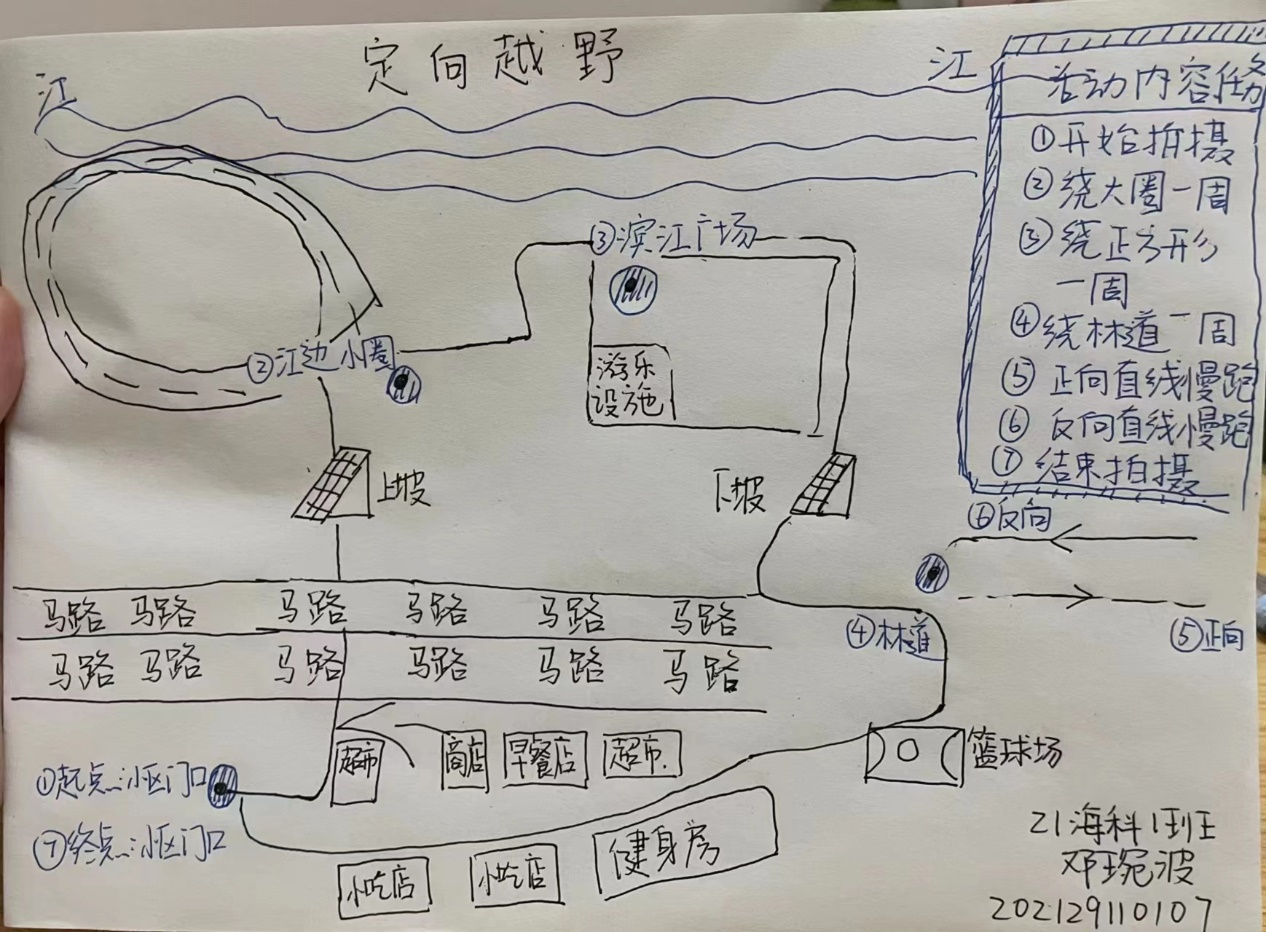 定向越野
江
江
活动内容任务
①开始拍摄
②绕大圈一周
③绕正方形
一周
④绕林道一周
⑤正向直线慢跑
⑥反向直线慢跑
⑦结束拍摄
③滨江广场
②江边小圈
游乐
设施
上坡
下坡
⑥反向
⑤正向
④林道
马路 马路 马路 马路 马路 马路
马路 马路 马路 马路 马路 马路
超市
商店
早餐店
超市
篮球场
①起点:小区门口
⑦终点:小区门口
小吃店
小吃店
健身房
21海科1班
邓琬波
202129110107